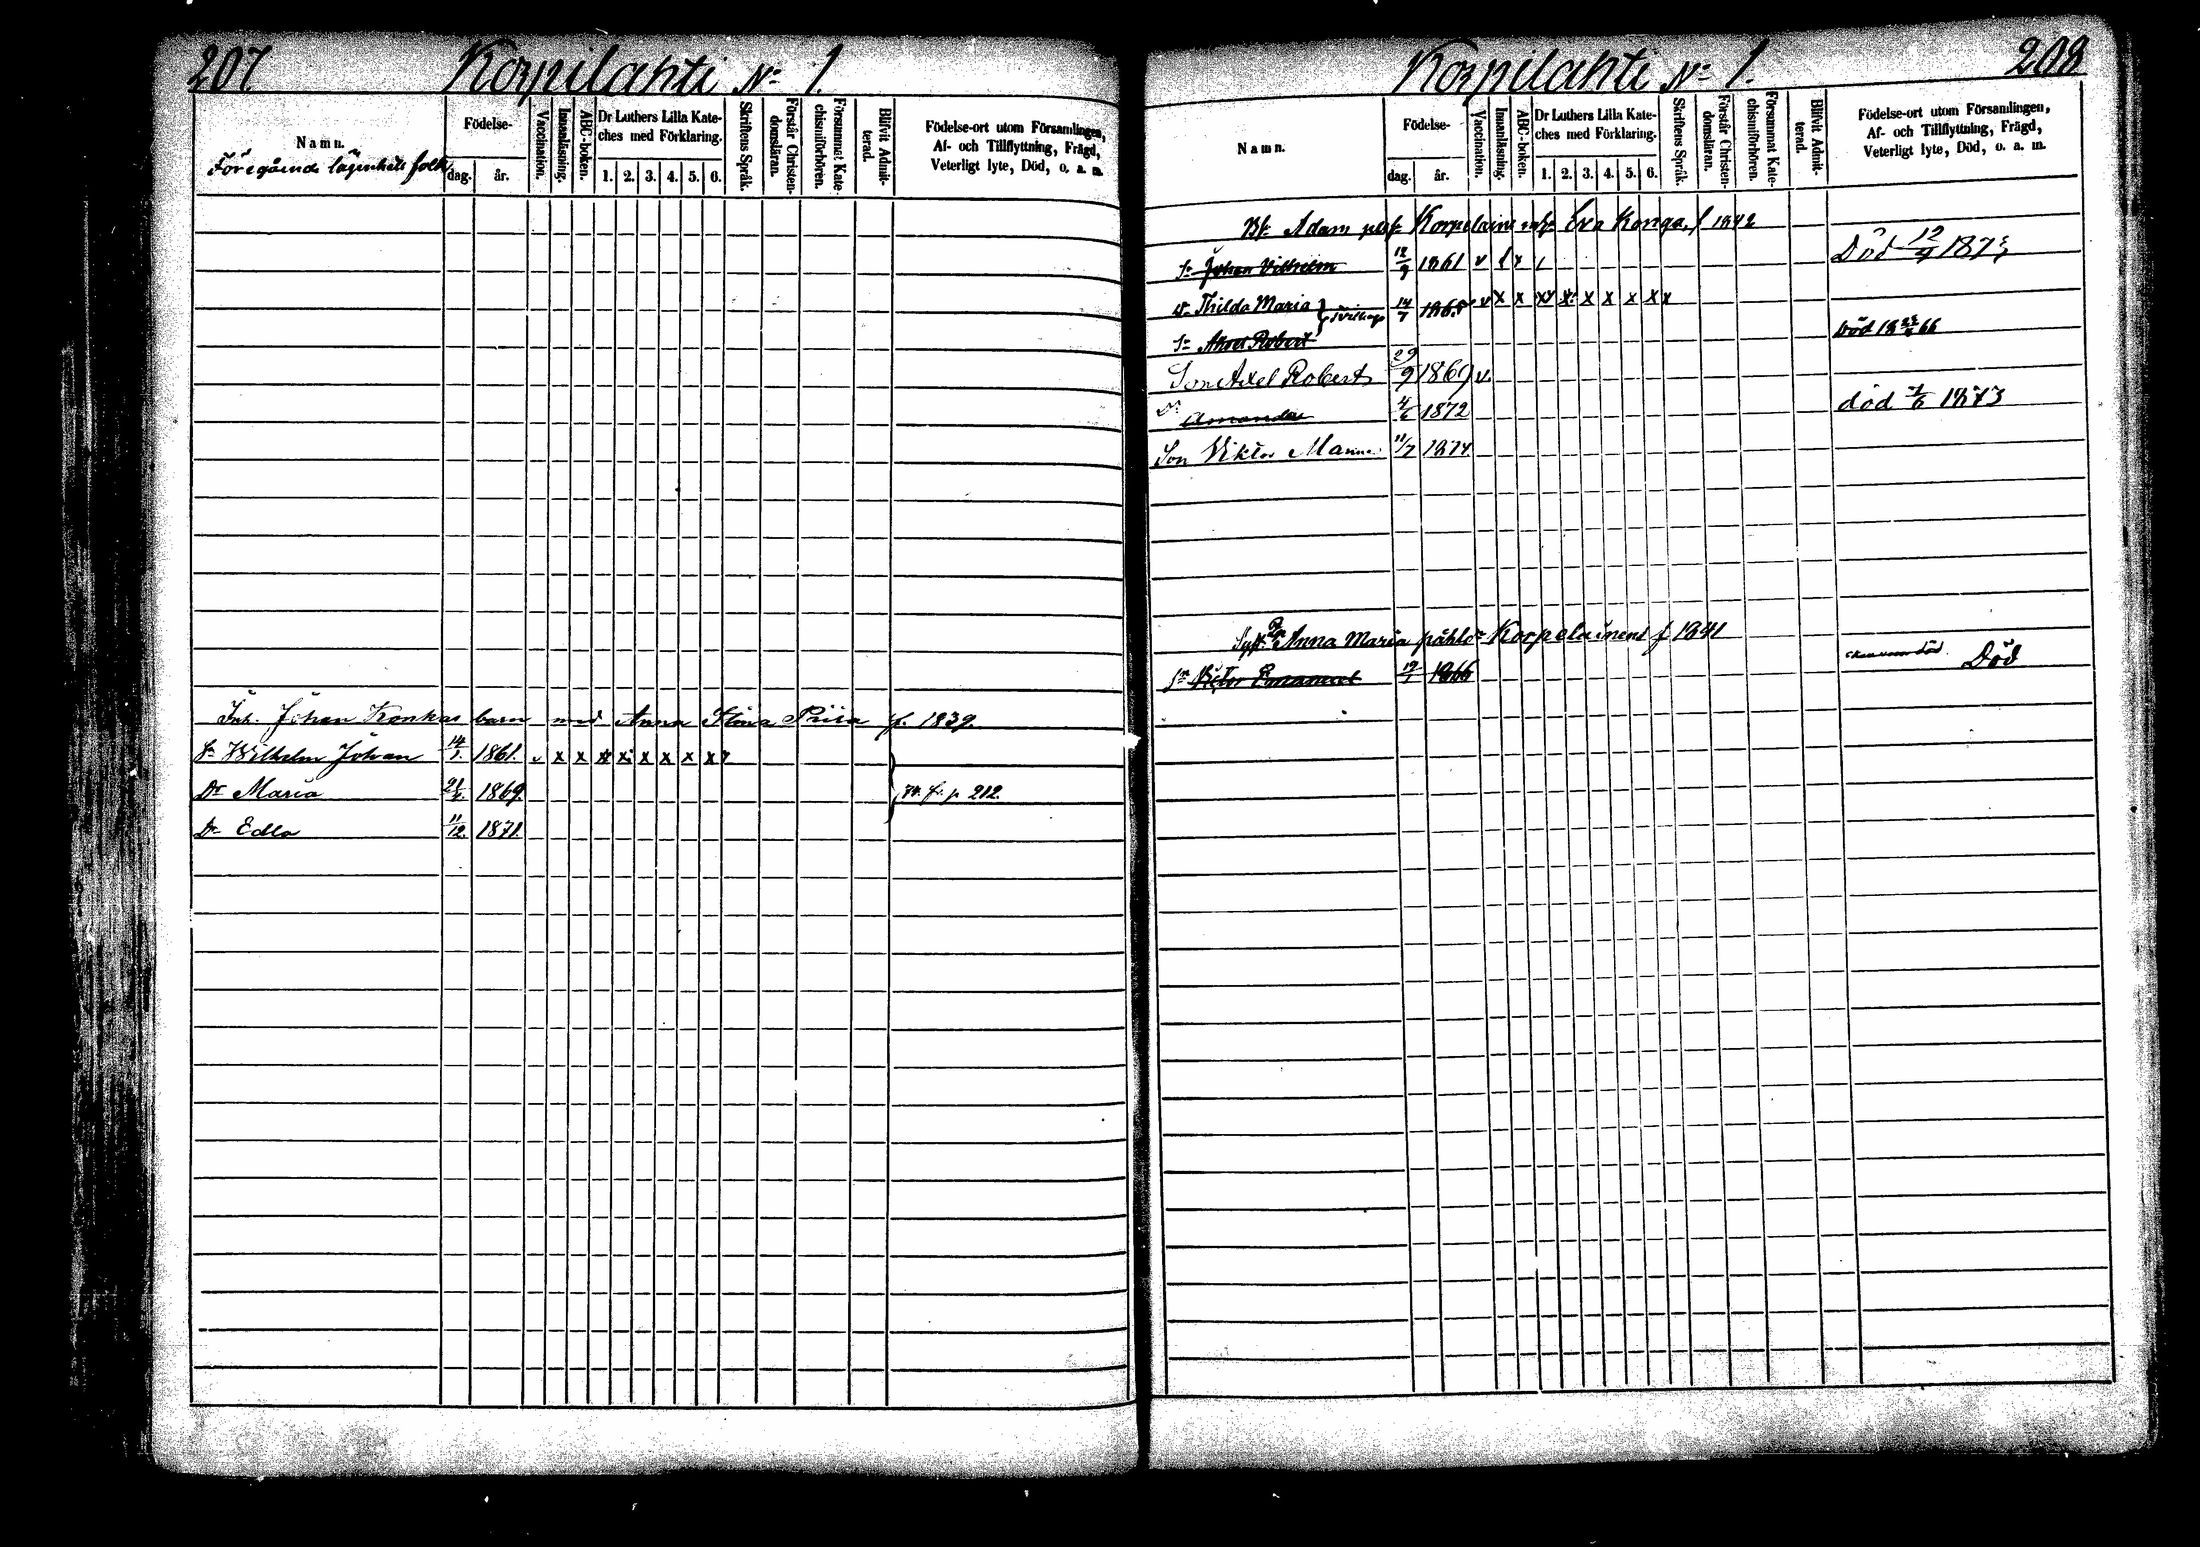 207 Korpilahti No 1.
Namn.
Föregående lägenhets folk
Födelse-
dag. år.
Vaccination.
Innanläsning.
ABC-boken.
Dr Luthers Lilla Kate-
ches med Förklaring.
1. 2. 3. 4. 5. 6.
Skriftens Språk.
Förstår Christen-
domsläran.
Försummat Kate-
chismiförhören.
Blifvit Admit-
terad.
Födelse-ort utom Församlingen,
Af- och Tillflyttning, Frägd,
Veterligt lyte, Död, o. a. m.
Inh. Johan Konkas barn med Anna Stina Piira f. 1839.
Sn Wilhelm Johan 14/1. 1861. v x x x x x x x x
Dr Maria 1869. p 212.
Dr Edla 11/12. 1871.
Korpilahti No 1. 208
Namn.
Födelse-
dag. år.
Vaccination.
Innanläsning.
ABC-boken.
Dr Luthers Lilla Kate-
ches med Förklaring.
1. 2. 3. 4. 5. 6.
Skriftens Språk.
Förstår Christen-
domsläran.
Försummat Kate-
chismiförhören.
Blifvit Admit-
terad.
Födelse-ort utom Församlingen,
Af- och Tillflyttning, Frägd,
Veterligt lyte, Död, o. a. m.
Adam Korpelaine Eva Konga, f 1842
Sn Johan Vilhelm 12/9 1861 v Död 12/4
Dr Thilda Maria 14/7 1865 v x x x x x x x x
Sn Robert Död 18 66
Son Axel Robert 29/9 1869 v.
Dr Amanda 4/6 1872 död 7/6 1873
Son Viktor 11/7 1874
Anna Maria Korpelainens f 1841
Sn Victor Emanuel 19/1 1866 Död